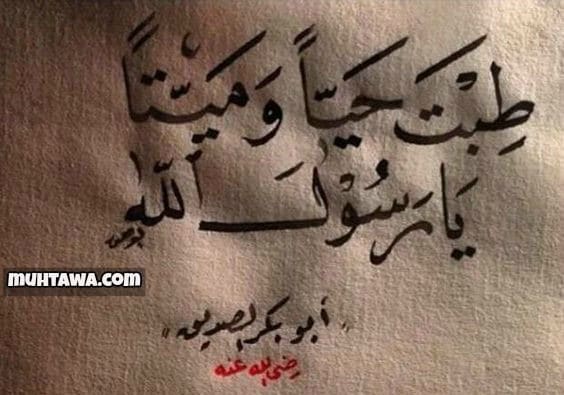 طِبْتَ حَيّاً وَمَيّتاً
يَا رَسُوْلَ اللّٰه
muhtawa.com
"أبو بكر الصديق"
رضي الله عنه